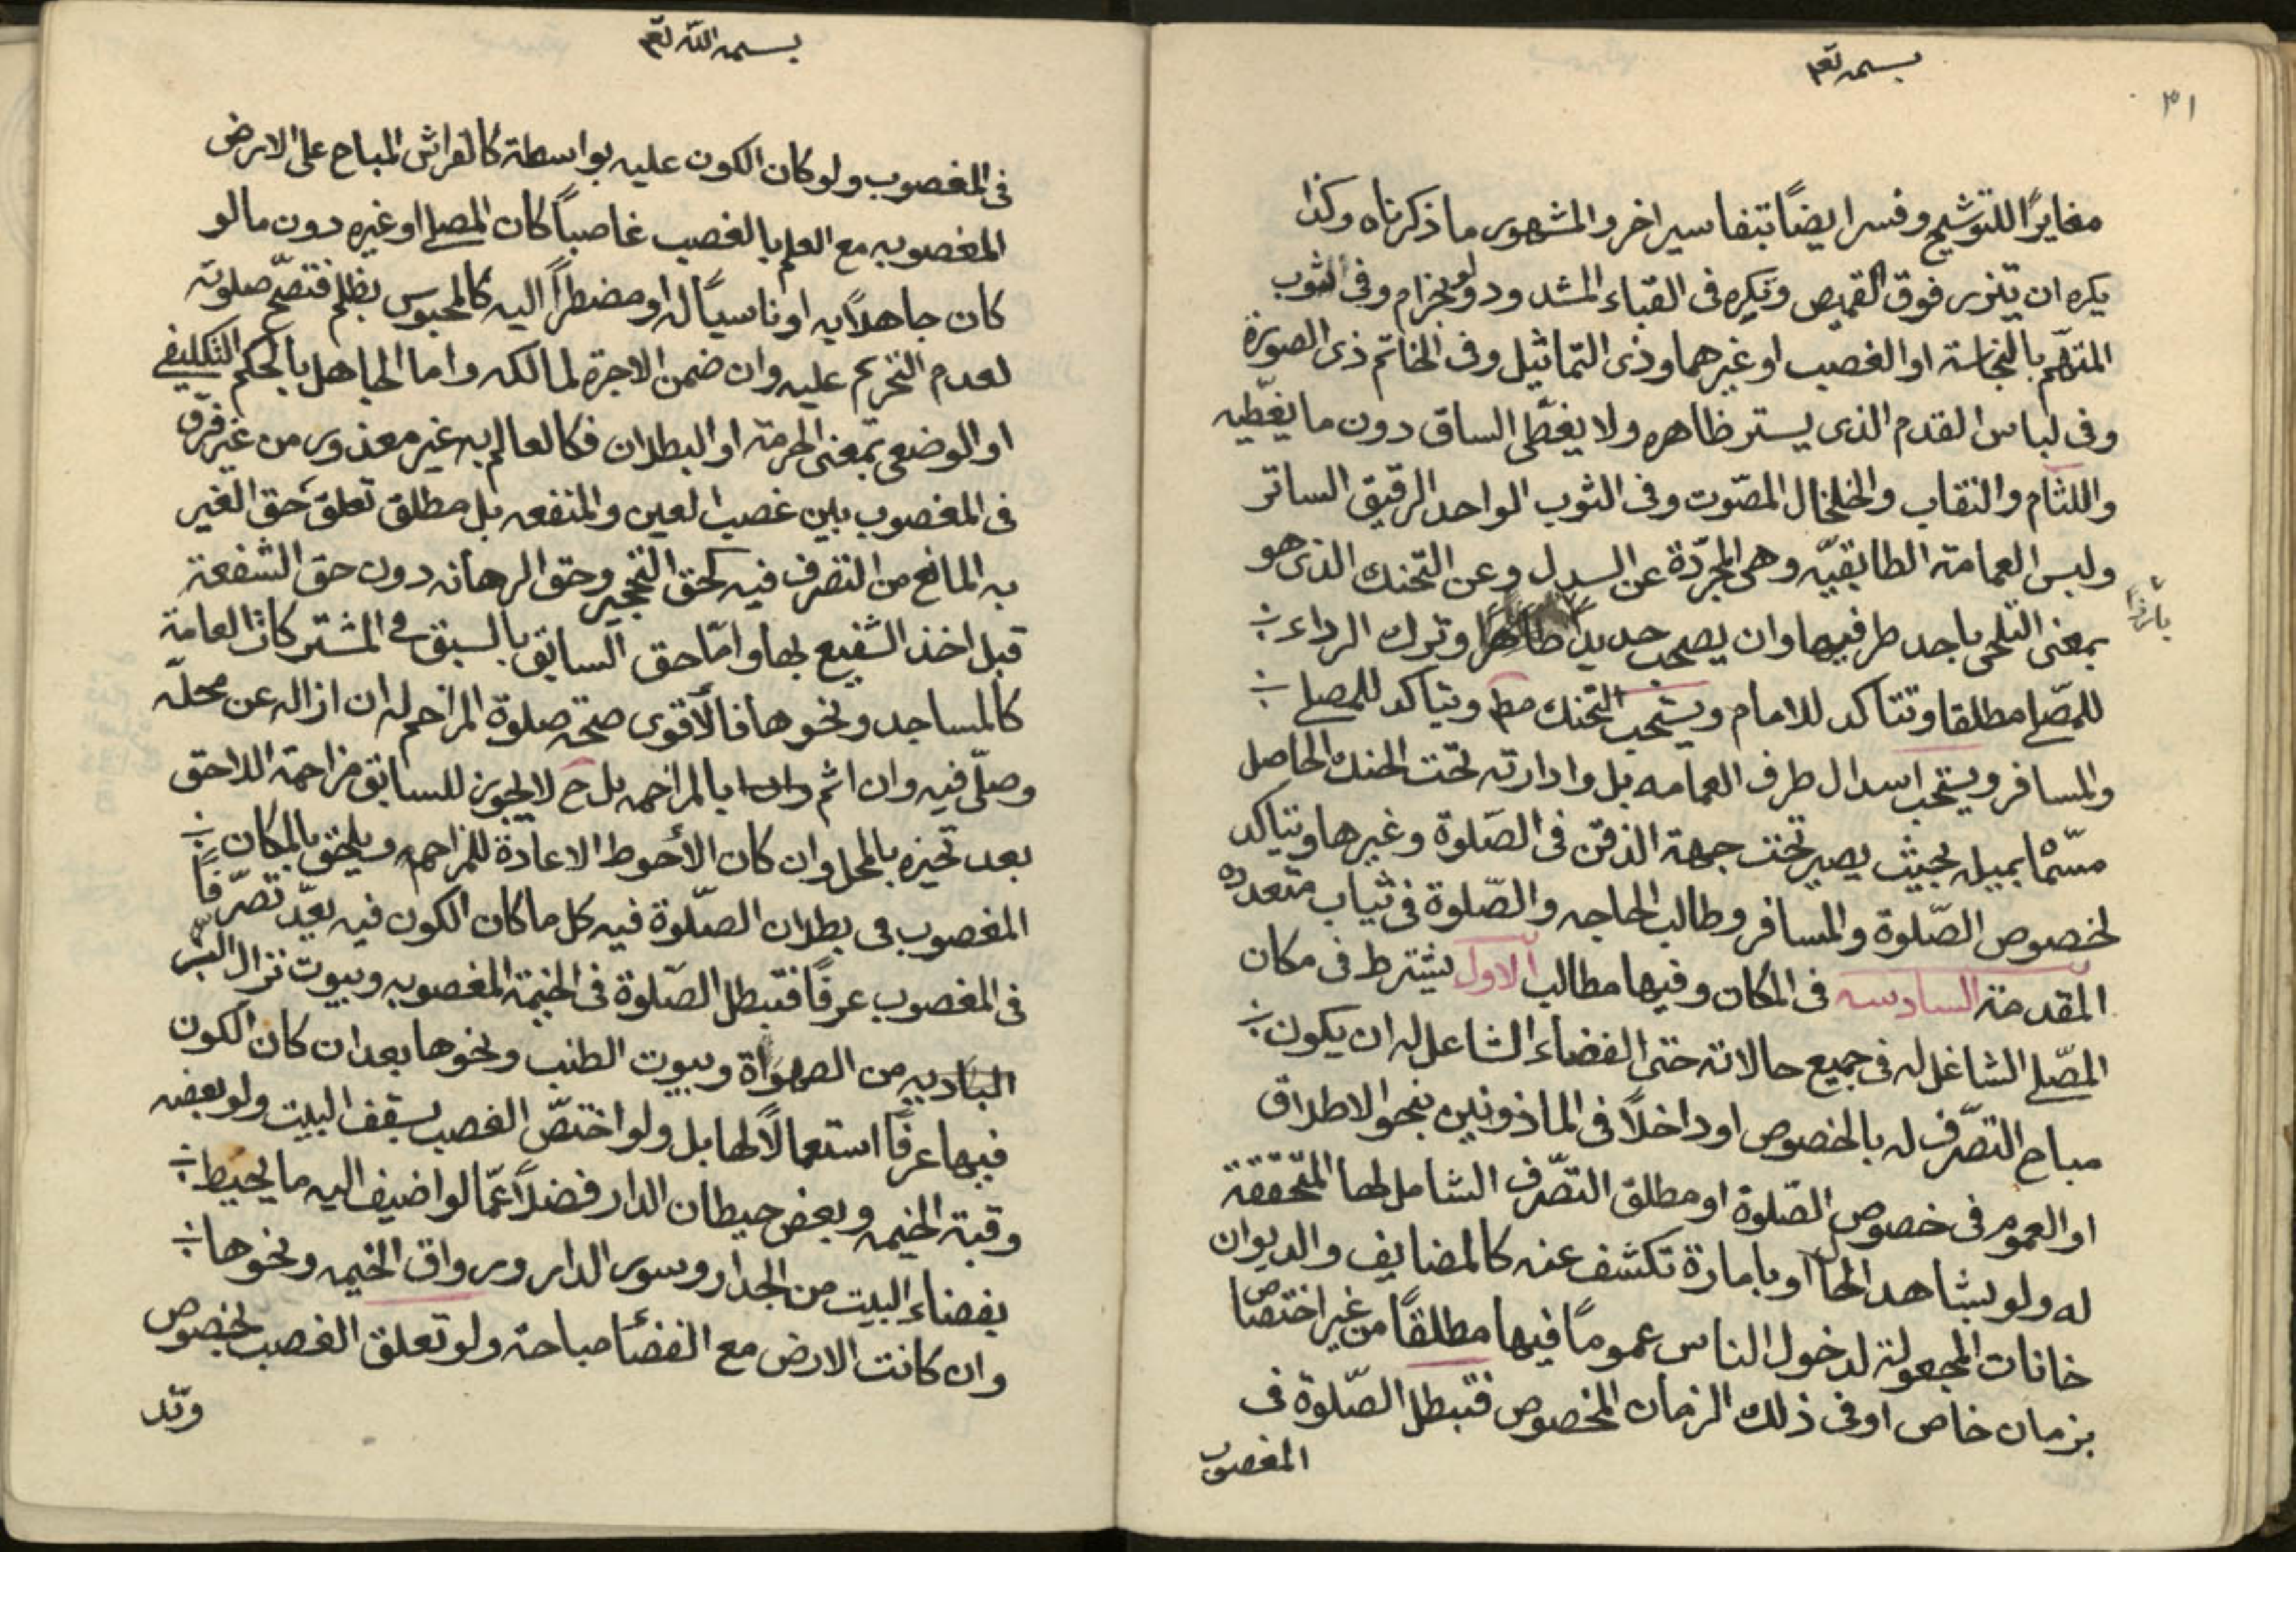 بسمه تعم
٣١
مغايرًا للتوشيح وفسر ايضًا بتفاسير اخر والمشهور ما ذكرناه وكذا
يكره ان يتزر فوق القميص وتكره فى القباء المشدود ولو بخزام وفى الثوب
المتهم بالنجاسة او الغصب او غيرهما وذى التماثيل وفى الخاتم ذى الصورة
وفى لباس القدم الذى يستر ظاهره ولا يغطّى الساق دون ما يغطّيه
واللثام والنقاب والخلخال المصّوت وفى الثوب الواحد الرقيق الساتر
ولبس العمامة الطابقيّه وهى المجرّدة عن السدل وعن التحنك الذى هو
بمعنى التلحى باحد طرفيها وان يصحب حديدا ظاهرًا وترك الرداء
بارزًا
للمصّلى مطلقا وتتاكد للامام ويستحب التحنك مط ويتاكد للمصلى
والمسافر ويستحب اسدال طرف العمامه بل وادارته تحت الحنك الحاصل
بميله بحيث يصير تحت جهة الذقن فى الصّلوة وغيرها ويتاكد
لخصوص الصّلوة والمسافر وطالب الحاجه والصّلوة فى ثياب متعدده
المقدمة السادسه فى المكان وفيها مطالب الاول يشترط فى مكان
المصّلى الشاغل له فى جميع حالاته حتى الفضاء الشاغل له ان يكون
مباح التصّرف له بالخصوص او داخلاً فى الماذونين بنحو الاطلاق
او العموم فى خصوص الصّلوة او مطلق التصّرف الشامل لها المتحققة
له ولو بشاهد الحال او بامارة تكشف عنه كالمضايف والديوان
خانات المجعولة لدخول الناس عمومًا فيها مطلقًا من غير اختصاص
بزمان خاص او فى ذلك الزمان المخصوص فتبطل الصّلوة فى
المغصوب
بسمه الله تعم
فى المغصوب ولو كان الكون عليه بواسطة كالفراش المباح على الارض
المغصوبه مع العلم بالغصب غاصباً كان المصلى او غيره دون ما لو
كان جاهلاً به او ناسياً له او مضطراً اليه كالمحبوس بظلم فتصّح صلوته
لعدم التحريم عليه وان ضمن الاجرة لمالكه واما الجاهل بالحكم التكليفى
او الوضعى بمعنى الحرمة او البطلان فكالعالم به غير معذور من غير فرق
فى المغصوب بين غصب العين والمنفعه بل مطلق تعلق حق الغير
به المانع من التصرف فيه كحق التحجير وحق الرهانه دون حق الشفعة
قبل اخذ الشفيع بها وامّا حق السابق بالسبق فى المشتركات العامة
كالمساجد ونحوها فالأقوى صحة صلوة المزاحم له ان ازاله عن محلّه
وصلّى فيه وان اثم بالمزاحمه بل ح لا يجوز للسابق مزاحمة اللاحق
بعد تحيزه بالمحل وان كان الأحوط الاعادة للمزاحم ويلحق بالمكان
المغصوب فى بطلان الصلّوة فيه كل ما كان الكون فيه يعدّ تصرّفاً
فى المغصوب عرفًا فتبطل الصّلوة فى الخيمة المغصوبه وبيوت نزال البّر
الباديه من الصهوة وبيوت الطنب ونحوها بعد ان كان الكون
فيها عرفًا استعمالاً لها بل ولو اختصّ الغصب بسقف البيت ولو بعضه
وقبة الخيمه وبعض حيطان الدار فضلاً عمّا لو اضيف اليه ما يحيط
بفضاء البيت من الجدار وسور الدار ورواق الخيمه ونحوها
وان كانت الارض مع الفضأ مباحة ولو تعلق الغصب بخصوص
وتد